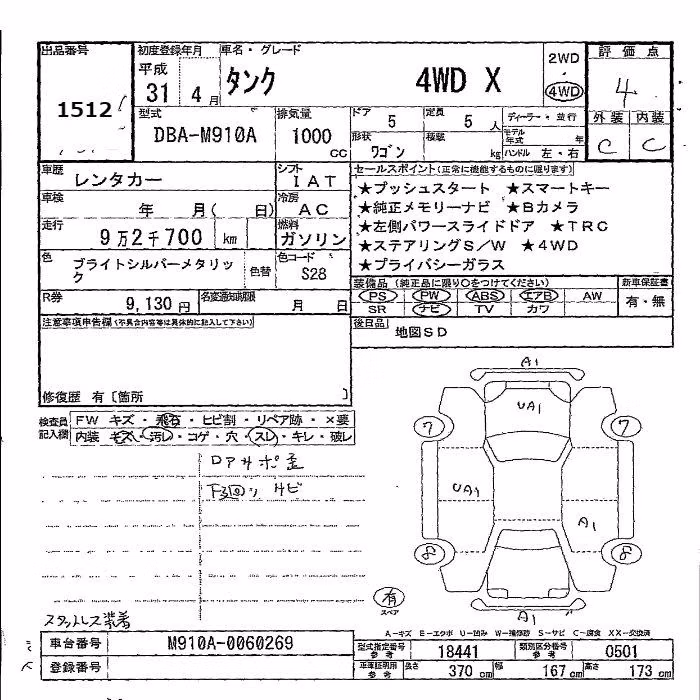 出品番号 初度登録年月 車名・グレード 評価点
1512
平成 31 4月 タンク 4WD X 2WD 4WD 4
型式 DBA-M910A 排気量 1000 CC ドア 5 定員 5人 ディーラー・並行 外装 内装
形状 ワゴン 積載 kg モデル年式 年 ハンドル 左・右 C C
車歴 レンタカー シフト IAT セールスポイント(正常に機能するものに限ります)
車検 年 月( 日) 冷房 AC
走行 9万2千700 km 燃料 ガソリン
色 ブライトシルバーメタリック 色替 色コード S28
★プッシュスタート ★スマートキー
★純正メモリーナビ ★Bカメラ
★左側パワースライドドア ★TRC
★ステアリングS/W ★4WD
★プライバシーガラス
R券 9,130円 名変通知期限 月 日
装備品(純正品に限り○をつけてください) 新車保証書
PS PW ABS エアB AW 有・無
SR ナビ TV カワ
注意事項申告欄(不具合内容等は具体的に記入して下さい)
後日品 地図SD
修復歴 有〔箇所 〕
検査員記入欄 FW キズ・飛石・ヒビ割・リペア跡・×要
内装 キズ・汚レ・コゲ・穴・スレ・キレ・破レ
ロアサポ歪
下廻りサビ
A1
UA1
7 7
UA1
A1
8 8
有
スペア
A1
スタッドレス装着
A-キズ E-エクボ U-凹み W-補修跡 S-サビ C-腐食 XX-交換済
車台番号 M910A-0060269 型式指定番号 参考 18441 類別区分番号 参考 0501
登録番号 車庫証明用 参考 長さ 370 cm 幅 167 cm 高さ 173 cm